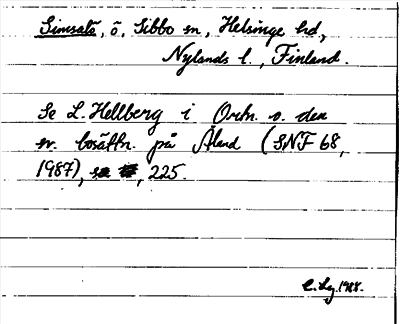 Simsalö, ö, Sibbo sn, Helsinge hd,
Nylands l., Finland.
Se L. Hellberg i Ortn. o. den
sv. bosättn. på Åland (SNF 68,
1987), 225.
1988.